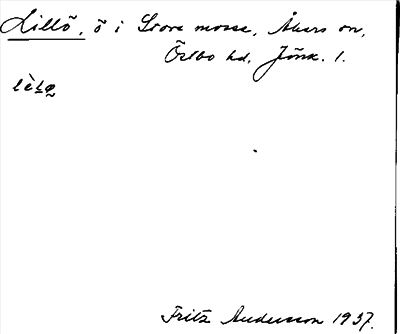 Lillö, ö i Store mosse, Åkers sn,
Östbo hd, Jönk. l.
Fritz Andersson 1937.